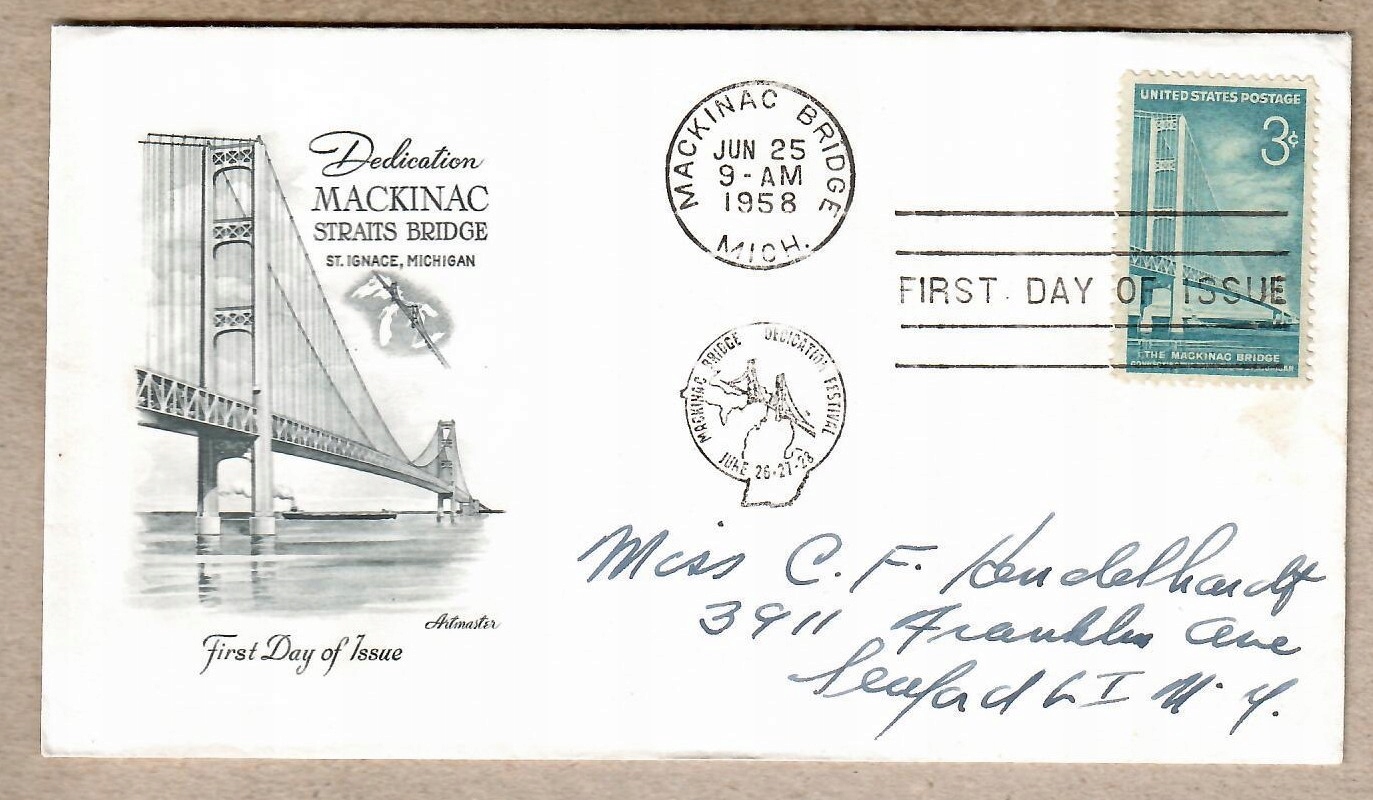 Dedication
MACKINAC
STRAITS BRIDGE
ST. IGNACE, MICHIGAN
Artmaster
First Day of Issue
MACKINAC BRIDGE
JUN 25
9-AM
1958
MICH.
MACKINAC BRIDGE DEDICATION FESTIVAL
JUNE 26-27-28
UNITED STATES POSTAGE
3¢
FIRST DAY OF ISSUE
THE MACKINAC BRIDGE
Miss C. F. Hendelhardt
3911 Franklin Ave
Seaford L I N. Y.